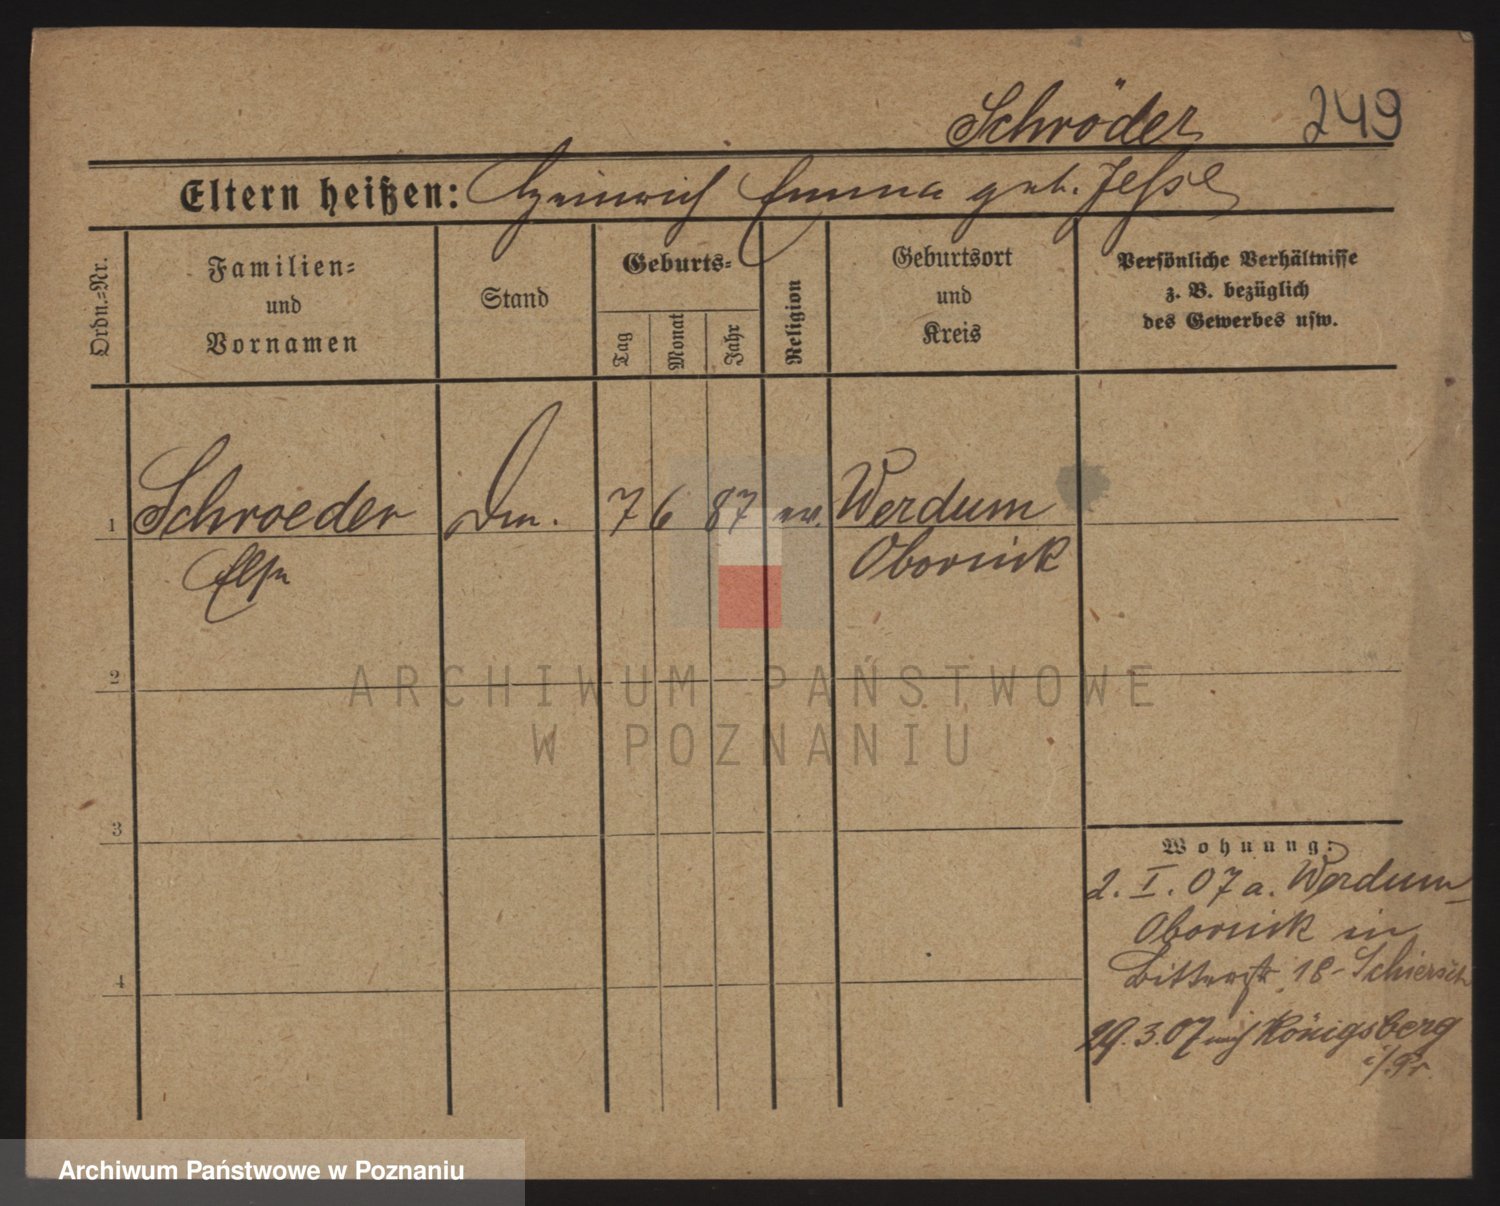 Schröder 249
Eltern heißen: Heinrich Emma geb. Jesse
Ordn.=Nr.
Familien=
und
Vornamen
Stand
Geburts=
Tag
Monat
Jahr
Religion
Geburtsort
und
Kreis
Persönliche Verhältnisse
z. B. bezüglich
des Gewerbes usw.
1 Schroeder 7 6 87 ev. Werdum
Else Obornick
2
ARCHIWUM PAŃSTWOWE
W POZNANIU
3
Wohnung:
2. I. 07 a. Werdum
Obornick in
4
Bitterstr. 18 -
29. 3. 07 nach Königsberg
i/Pr.
Archiwum Państwowe w Poznaniu